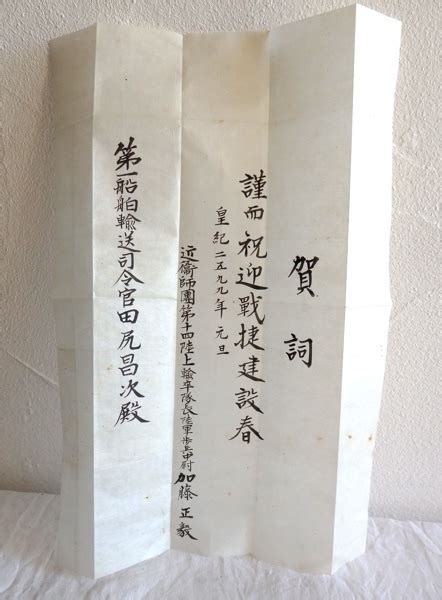 賀詞
謹而祝迎戰捷建設春
皇紀二五九九年元旦
近衞師團第十四陸上輸卒隊長陸軍歩兵中尉加藤正毅
第一船舶輸送司令官田尻昌次殿